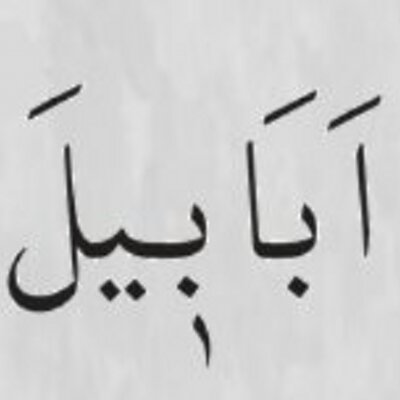 اَبَابٖيلَ